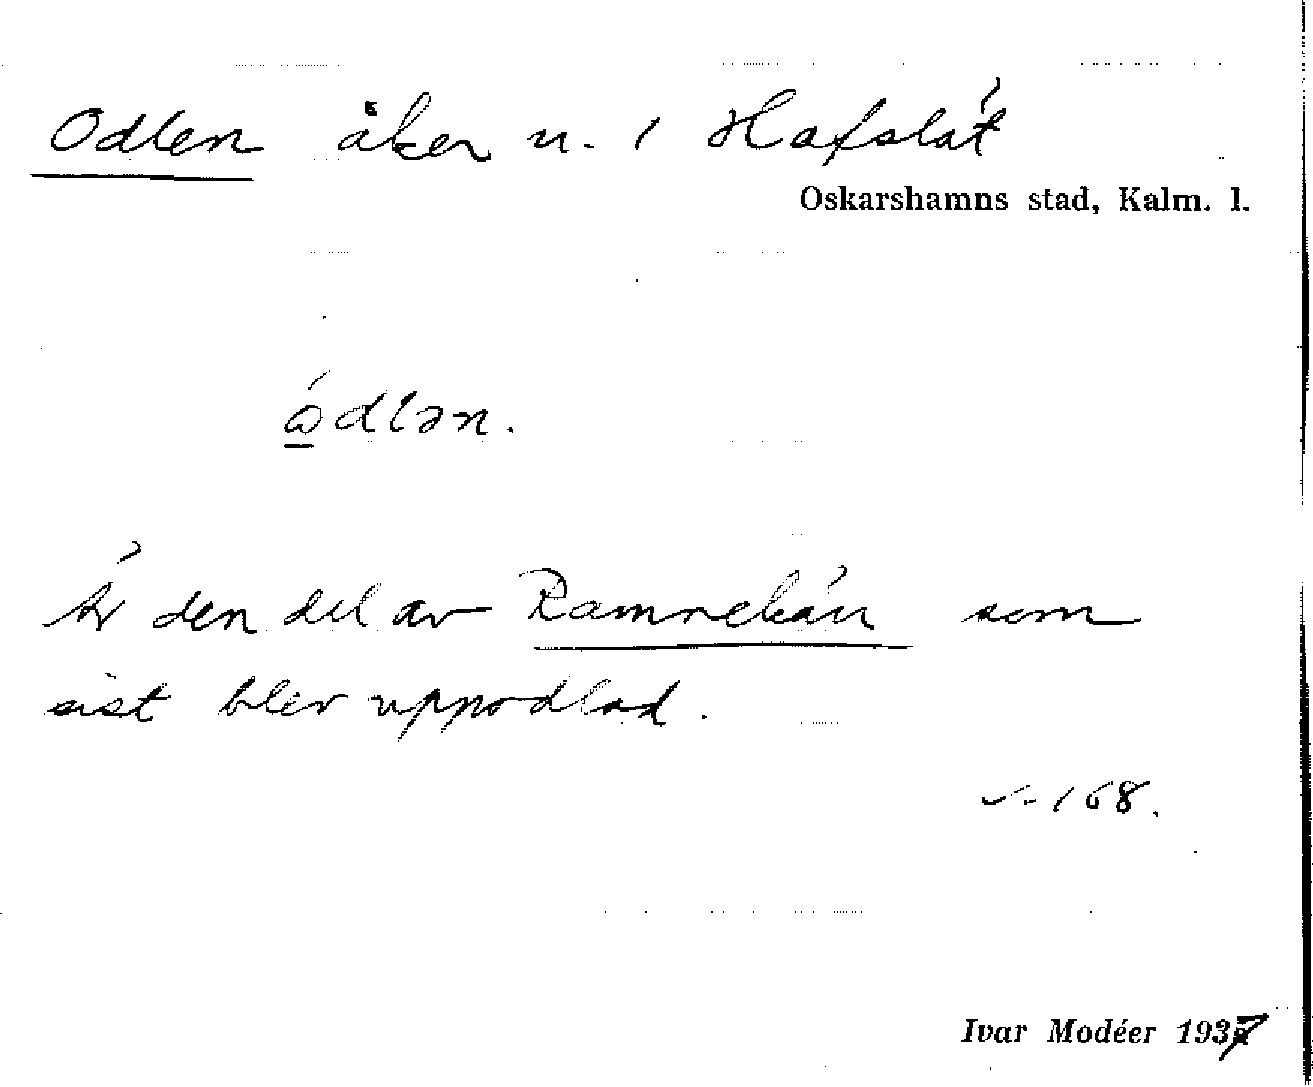 Odlen åker u. 1 Hafslät
Oskarshamns stad, Kalm. l.
ódlən.
Är den del av Ramnekärr som
sist blev uppodlad.
168.
Ivar Modéer 1937